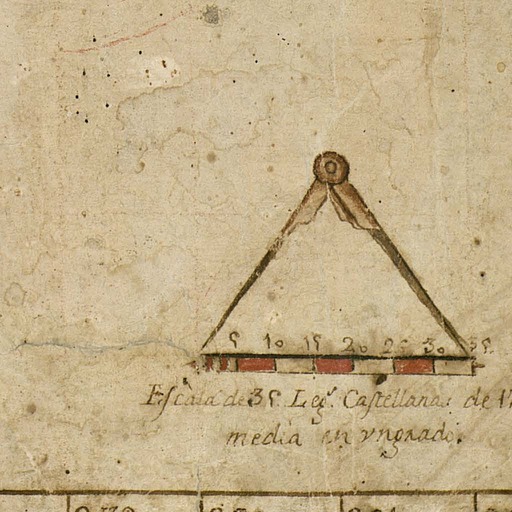 5 10 15 20 25 30 35
Escala de 35 Leg.s Castellanas de
media en vn grado.